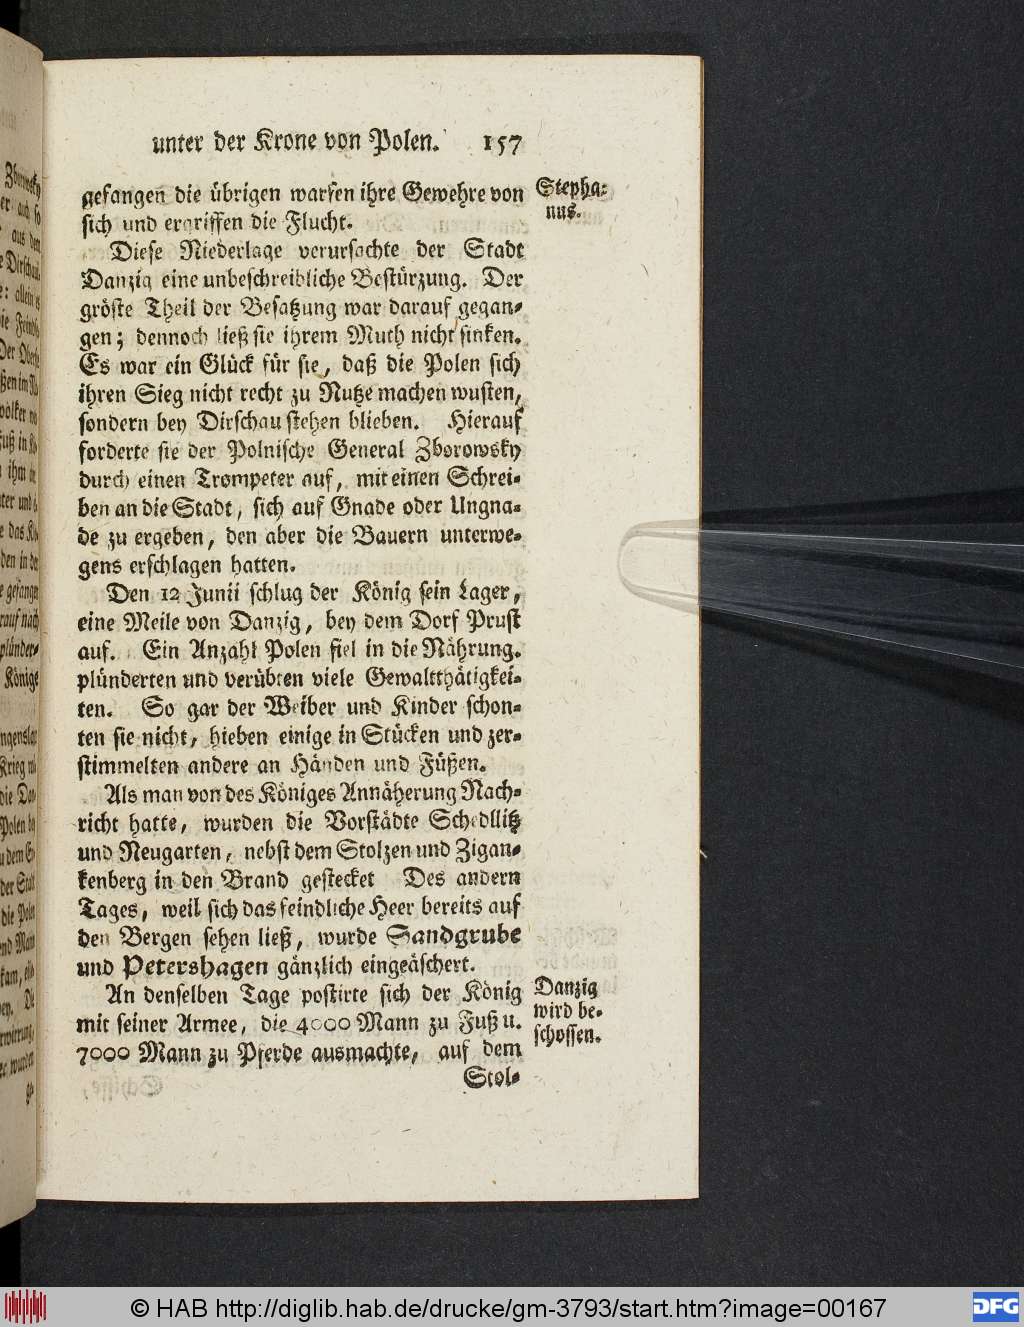 unter der Krone von Polen. 157
gefangen die übrigen warfen ihre Gewehre von
sich und ergriffen die Flucht.
Stepha-
nus.
Diese Niederlage verursachte der Stadt
Danzig eine unbeschreibliche Bestürzung. Der
gröste Theil der Besatzung war darauf gegan-
gen; dennoch ließ sie ihrem Muth nicht sinken.
Es war ein Glück für sie, daß die Polen sich
ihren Sieg nicht recht zu Nutze machen wusten,
sondern bey Dirschau stehen blieben. Hierauf
forderte sie der Polnische General Zborowsky
durch einen Trompeter auf, mit einen Schrei-
ben an die Stadt, sich auf Gnade oder Ungna-
de zu ergeben, den aber die Bauern unterwe-
gens erschlagen hatten.
Den 12 Junii schlug der König sein Lager,
eine Meile von Danzig, bey dem Dorf Prust
auf. Ein Anzahl Polen fiel in die Nährung.
plünderten und verübten viele Gewaltthätigkei-
ten. So gar der Weiber und Kinder schon-
ten sie nicht, hieben einige in Stücken und zer-
stimmelten andere an Händen und Füßen.
Als man von des Königes Annäherung Nach-
richt hatte, wurden die Vorstädte Schedllitz
und Neugarten, nebst dem Stolzen und Zigan-
kenberg in den Brand gestecket Des andern
Tages, weil sich das feindliche Heer bereits auf
den Bergen sehen ließ, wurde Sandgrube
und Petershagen gänzlich eingeäschert.
An denselben Tage postirte sich der König
mit seiner Armee, die 4000 Mann zu Fuß u.
7000 Mann zu Pferde ausmachte, auf dem
Danzig
wird be-
schossen.
Stol-
© HAB http://diglib.hab.de/drucke/gm-3793/start.htm?image=00167
DFG